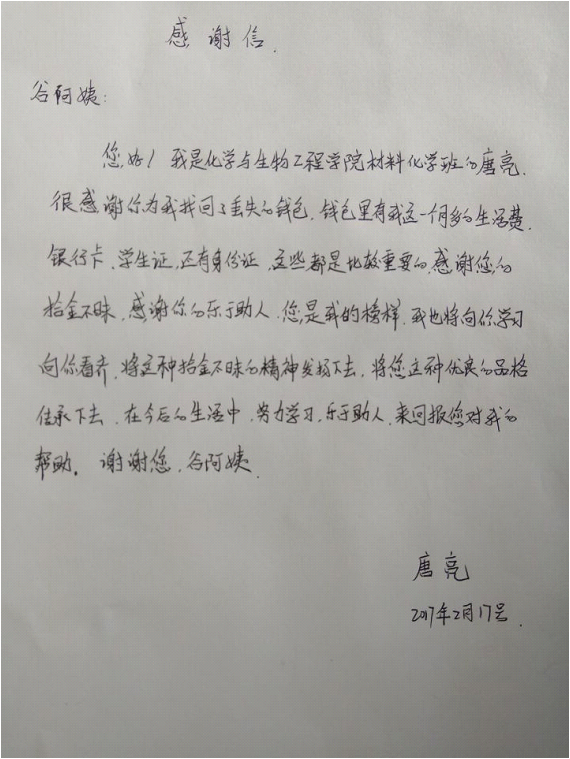 感谢信.
谷阿姨:
您好！我是化学与生物工程学院材料化学班的唐亮.
很感谢你为我找回了丢失的钱包.钱包里有我这一个月多的生活费.
银行卡、学生证,还有身份证,这些都是比较重要的,感谢您的
拾金不昧,感谢你的乐于助人.您是我的榜样.我也将向你学习
向你看齐,将这种拾金不昧的精神发扬下去,将您这种优良的品格
传承下去,在今后的生活中,努力学习,乐于助人,来回报您对我的
帮助。谢谢您,谷阿姨.
唐亮
2017年2月17号.